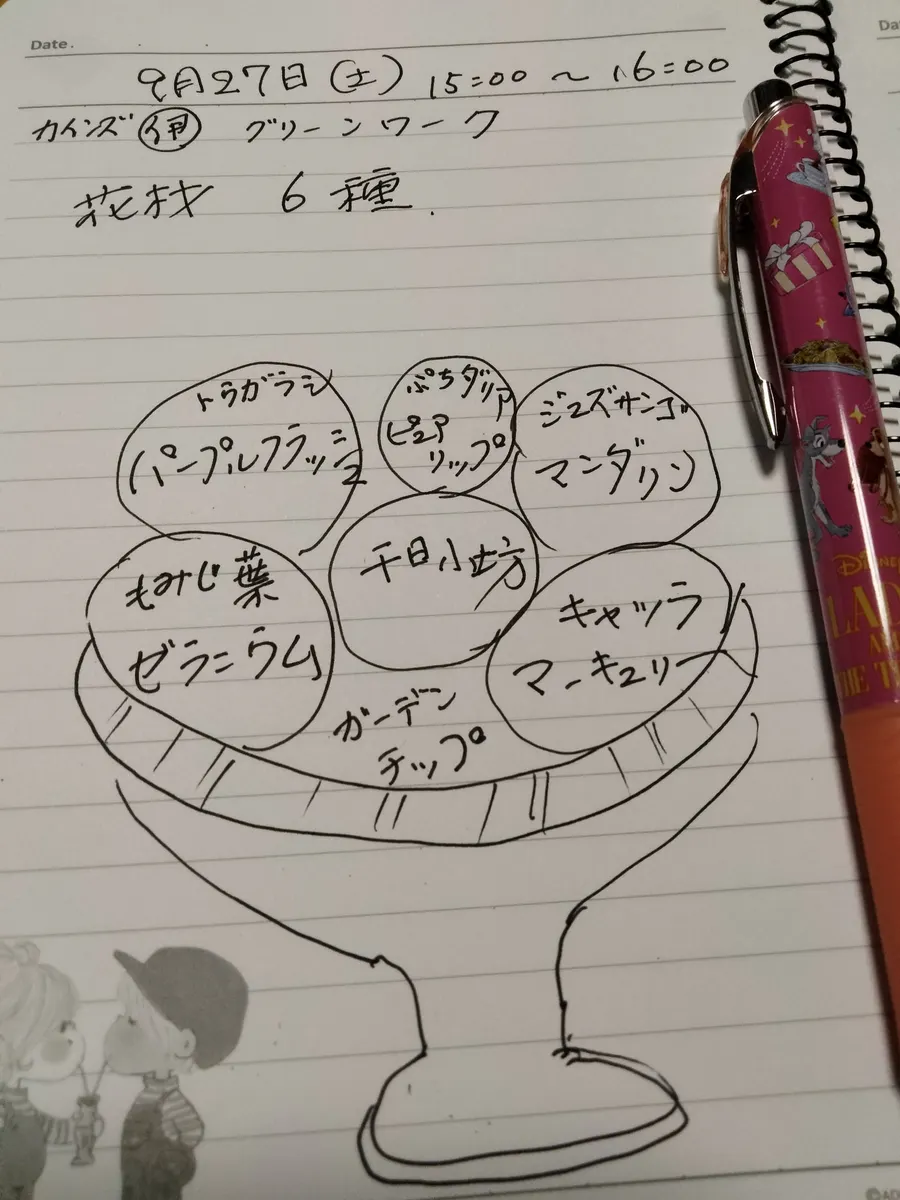 Date.
9月27日(土) 15:00 ~ 16:00
カインズ 伊 グリーンワーク
花材 6種.
トウガラシ
パープルフラッシュ
ぷちダリア
ピュア
リップ
ジュズサンゴ
マンダリン
もみじ葉
ゼラニウム
千日小坊
キャッツラ
マーキュリー
ガーデン
チップ
DISNEY
LAD
AND
THE T
©AD
Da